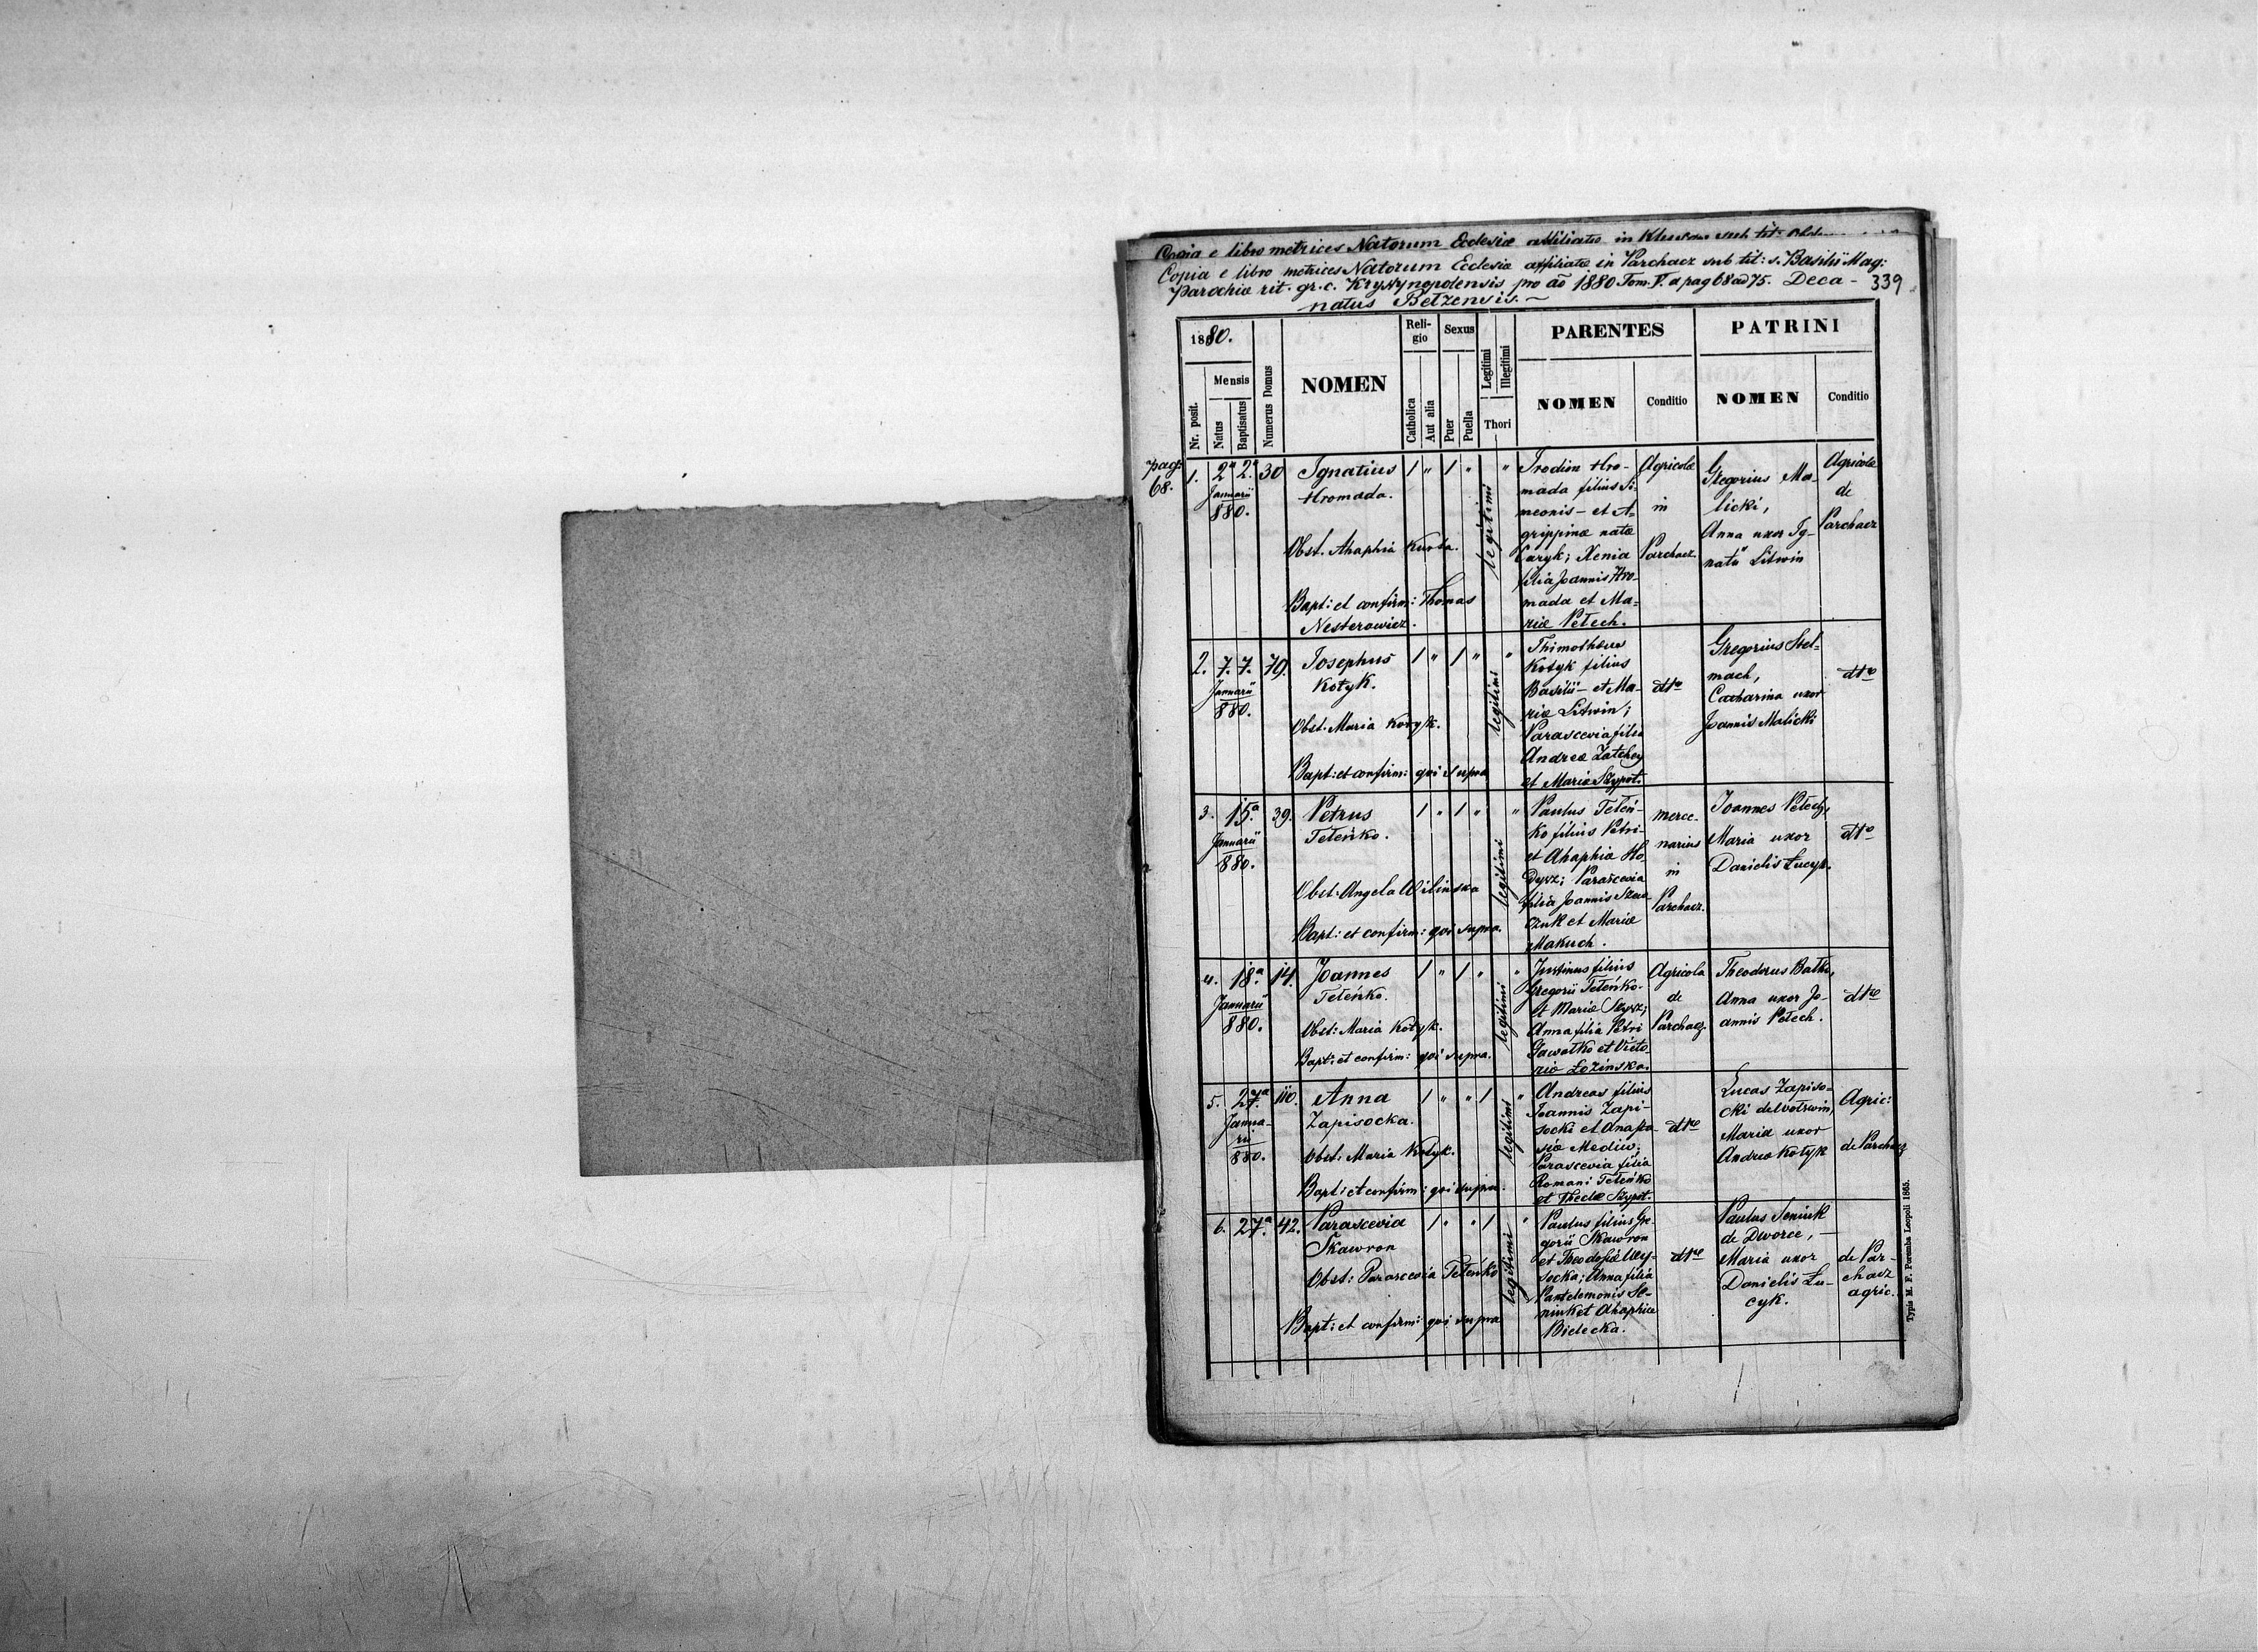 Copia e libro metrices Natorum Ecclesiæ affiliatæ in sub tit:
Copia e libro metrices Natorum Ecclesiæ affiliatæ in Parchacz sub tit: s. Basilii Mag:
Parochiæ rit. gr. c. Krystynopolensis pro ão 1880 Tom. V. a pag 68 ad 75. Deca-
natus Bełzensis.
339
1880.
Mensis
Nr. posit.
Natus
Baptisatus
Numerus Domus
NOMEN
Reli-
gio
Catholica
Aut alia
Sexus
Puer
Puella
Legitimi
Illegitimi
Thori
PARENTES
NOMEN
Conditio
PATRINI
NOMEN
Conditio
pag:
68.
1. 2ª 2ª 30
Januarii
880.
Ignatius
Hromada.
Obst. Ahaphia Kurta.
Bapt: et confirm: Thomas
Nesterowicz.
1 " 1 " "
legitimi
Irodion Hro-
mada filius Si-
meonis - et A-
grippinæ natæ
Caryk; Xenia
filia Joannis Hro-
mada et Ma-
riæ Pełech.
Agricolæ
in
Parchacz.
Gregorius Ma-
licki,
Anna uxor Ig-
natii Litwin
Agricolæ
de
Parchacz
2. 7. 7. 79.
Januarii
880.
Josephus
Kotyk.
Obst. Maria Kotyk.
Bapt: et confirm: qui supra
1 " 1 " "
legitimi
Thimotheus
Kotyk filius
Basilii - et Ma-
riæ Litwin;
Parascevia filia
Andreæ Zatchey
et Mariæ Szypot.
dtto
Gregorius Stel-
mach,
Catharina uxor
Joannis Malicki
dtto
3. 15.ª 39.
Januarii
880.
Petrus
Teteńko.
Obst. Angela Wilinska
Bapt: et confirm: qui supra.
1 " 1 " "
legitimi
Paulus Teteń-
ko filius Petri -
et Ahaphiæ Ho
dysz; Parascevia
filia Joannis
czuk et Mariæ
Makuch.
merce-
narius
in
Parchacz.
Joannes Pełech,
Maria uxor
Danielis Łucyk.
dtto
4. 18.ª 14.
Januarii
880.
Joannes
Teteńko.
Obst: Maria Kotyk.
Bapt: et confirm: qui supra.
1 " 1 " "
legitimi
Justinus filius
Gregorii Teteńko.
et Mariæ Szysz;
Anna filia Petri
Gawołko et Victo-
riæ Łozińska.
Agricola
de
Parchacz.
Theodorus Bałko,
Anna uxor Jo-
annis Pełech.
dtto
5. 27.ª 110.
Janua-
rii
880.
Anna
Zapisocka.
Obst: Maria Kotyk.
Bapt: et confirm: qui supra.
1 " " 1 "
legitimi
Andreas filius
Joannis Zapi-
socki et Anasta
siæ Mediw;
Parascevia filia
Romani Teteńko
et Theclæ Szypot.
dtto
Lucas Zapiso-
cki de
Maria uxor
Andreæ Kotyk
Agric:
de Parchacz
6. 27.ª 42.
Parascevia
Skawron
Obst: Parascevia Teteńko
Bapt: et confirm: qui supra
1 " " 1 "
legitimi
Paulus filius Gre
gorii Skawron
et Theodosiæ Wy-
socka; Anna filia
Pantelemonis Se-
niuk et Ahaphiæ
Bielecka.
dtto
Paulus Seniuk
de Dworce, -
Maria uxor
Danielis Łu-
cyk.
de Par-
chacz
agric.
Typis M. F. Poremba Leopoli 1865.